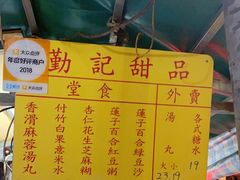 大众点评
年度好评商户
2018
勤記甜品
堂食
外賣
蓮子百合綠豆沙
蓮子百合紅豆粥
杏仁花生芝麻糊
付竹白果薏米水
香滑麻蓉湯丸
各式糖水
湯丸
大小
19
23 19